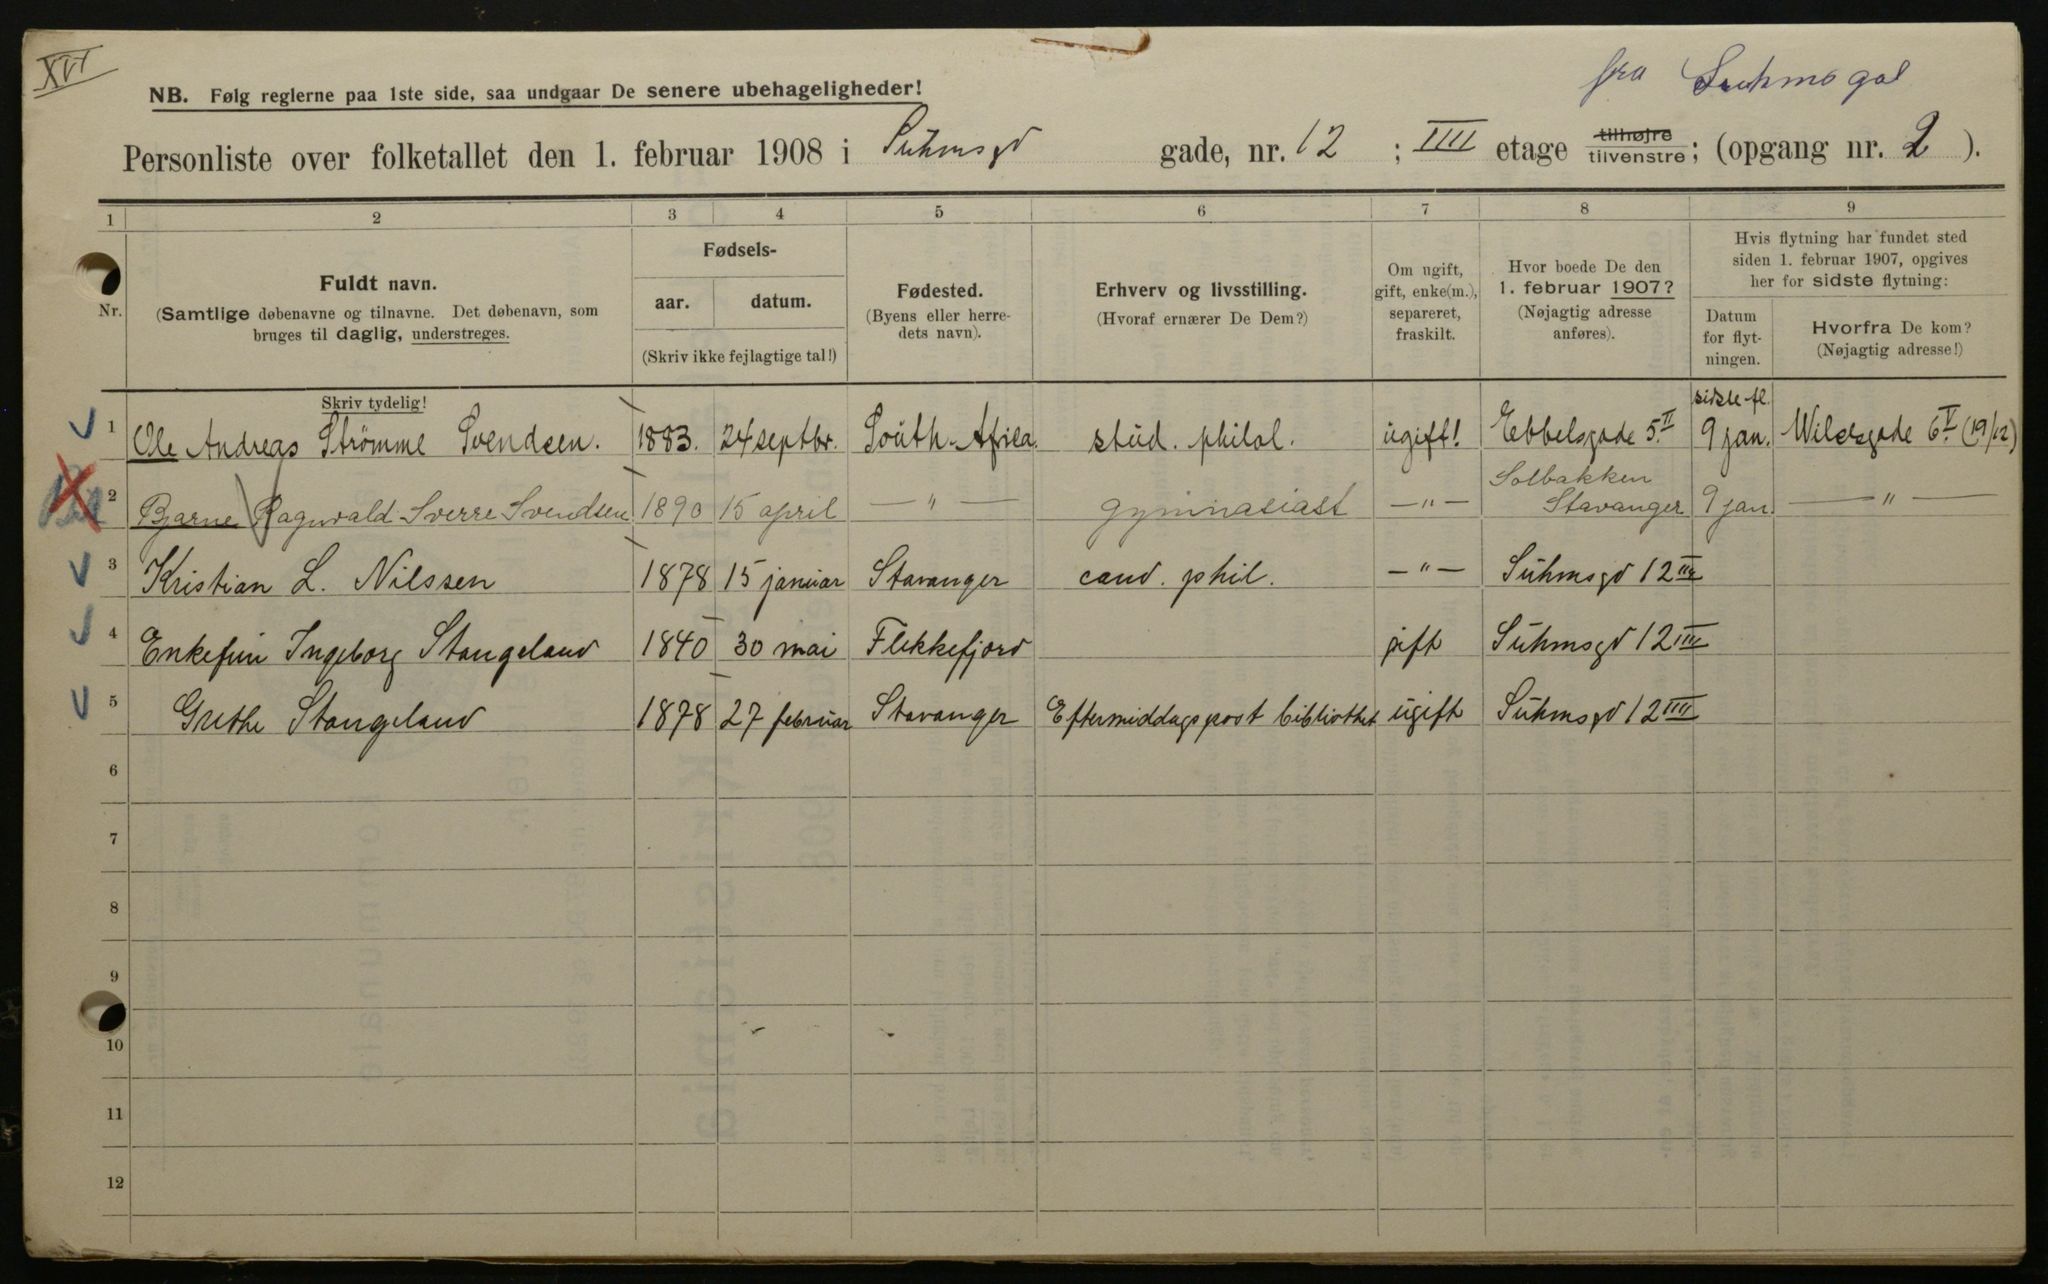 XVI
NB. Følg reglerne paa 1ste side, saa undgaar De senere ubehageligheder!
fra Suhmsgd
Personliste over folketallet den 1. februar 1908 i Suhmsgd gade, nr. 12 ; IIII etage tilhøjre tilvenstre; (opgang nr. 2 ).
1 2 3 4 5 6 7 8 9
Nr.
Fuldt navn.
(Samtlige døbenavne og tilnavne. Det døbenavn, som
bruges til daglig, understreges.
Skriv tydelig!
Fødsels-
aar. datum.
(Skriv ikke fejlagtige tal!)
Fødested.
(Byens eller herre-
dets navn).
Erhverv og livsstilling.
(Hvoraf ernærer De Dem?)
Om ugift,
gift, enke(m.),
separeret,
fraskilt.
Hvor boede De den
1. februar 1907?
(Nøjagtig adresse
anføres).
Hvis flytning har fundet sted
siden 1. februar 1907, opgives
her for sidste flytning:
Datum
for flyt-
ningen.
Hvorfra De kom?
(Nøjagtig adresse!)
sidste fl.
1 Ole Andreas Strømme Svendsen. 1883. 24 septbr. South-Africa stud. philol. ugift! Ebbelsgade 5.II 9 jan. Wilsesgade 6.V (19/12)
2 Bjarne Ragnvald Sverre Svendsen 1890 15 april — " — gymnasiast — " — Solbakken
Stavanger 9 jan. — " —
3 Kristian L. Nilssen 1878 15 januar Stavanger cand. phil. — " — Suhmsgd 12 IIII
4 Enkefru Ingeborg Stangeland 1840 30 mai Flekkefjord gift Suhmsgd 12 IIII
5 Grethe Stangeland 1878 27 februar Stavanger Eftermiddagspost bibliothek ugift Suhmsgd 12 IIII
6
7
8
9
10
11
12